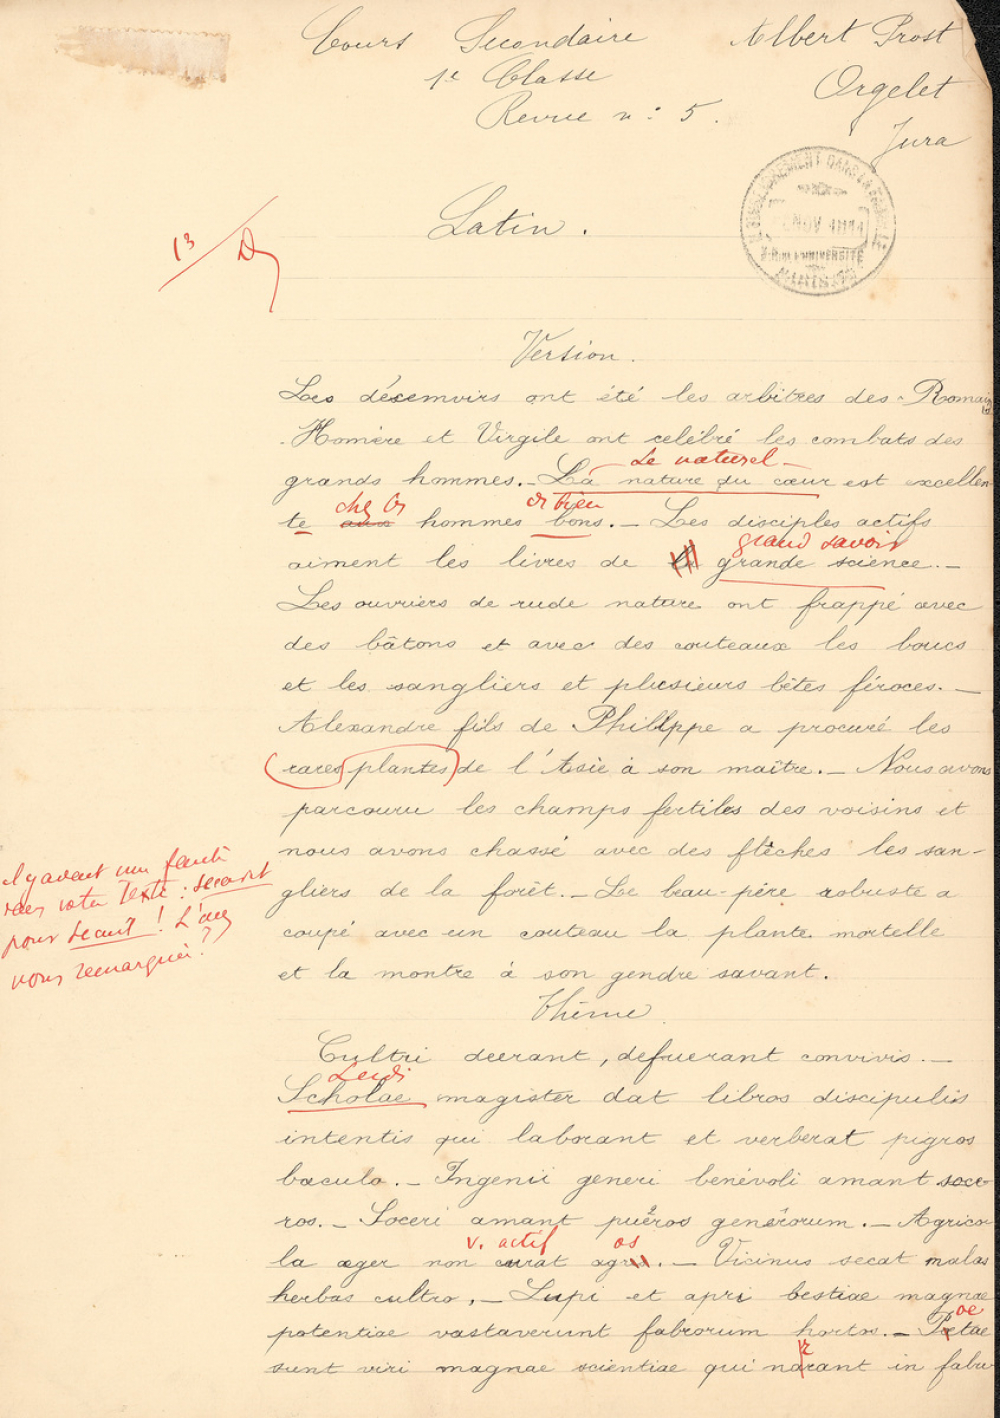 Cours Secondaire Albert Prost
1e Classe Orgelet
Revue n: 5. Jura
Latin.
13
Version.
Les décemvirs ont été les arbitres des Romains
Homère et Virgile ont celébré les combats des
Le naturel
grands hommes. - La nature du cœur est excellen-
chez les et bien
te aux hommes bons. - Les disciples actifs
grand savoir
aiment les livres de grande science. -
Les ouvriers de rude nature ont frappé avec
des bâtons et avec des couteaux les boucs
et les sangliers et plusieurs bêtes féroces. -
Alexandre fils de Philippe a procuré les
(rares (plantes) de l'Asie à son maître. - Nous avons
parcouru les champs fertiles des voisins et
nous avons chassé avec des flèches les san-
gliers de la forêt. - Le beau-père robuste a
coupé avec un couteau la plante mortelle
et la montre à son gendre savant.
il y avait une faute
dans votre texte : secavit
pour secant ! L'avez
vous remarqué ?
Thème
Cultri deerant, defuerant convivis. -
Ludi
Scholae magister dat libros discipulis
intentis qui laborant et verberat pigros
baculo. - Ingenii generi benévoli amant soce-
ros. - Soceri amant puĕros genĕrorum. - Agrico-
v. actif os
la æger non curat agr. - Vicinus secat malas
herbas cultro. - Lupi et apri bestiae magnae
potentiae vastaverunt fabrorum hortos. - Petae
oe
sunt viri magnae scientiae qui narant in fabu-
r